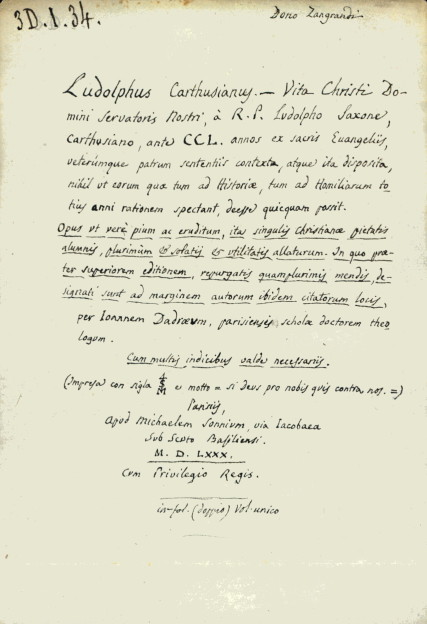 3D.I.34.
Dono Zangrandi
Ludolphus Carthusianus. — Vita Christi Do-
mini Servatoris Nostri, à R. P. Ludolpho Saxone,
Carthusiano, ante CCL. annos ex sacris Euangeliis,
veterumque patrum sententiis contexta, atque ita disposita,
nihil ut eorum quæ tum ad Historiæ, tum ad Homiliarum to
tius anni rationem spectant, deesse quicquam possit.
Opus ut verè pium ac eruditum, itas singulis Christianæ pietatis
alumnis, plurimum & solatii & utilitatis allaturum. In quo præ-
ter superiorem editionem, repurgatis quamplurimis mendis, de-
signati sunt ad marginem autorum ibidem citatorum locis,
per Ioannem Dadræum, parisiensis scholæ doctorem theo
logum.
Cum multis indicibus valde necessariis.
(Impresa con sigla e motto = si Deus pro nobis quis contra nos. =)
Parisiis,
Apud Michaelem Sonnium, via Iacobaea
Sub Scuto Basiliensi.
M. D. LXXX.
Cum Privilegio Regis.
in-fol. (doppio) Vol. unico